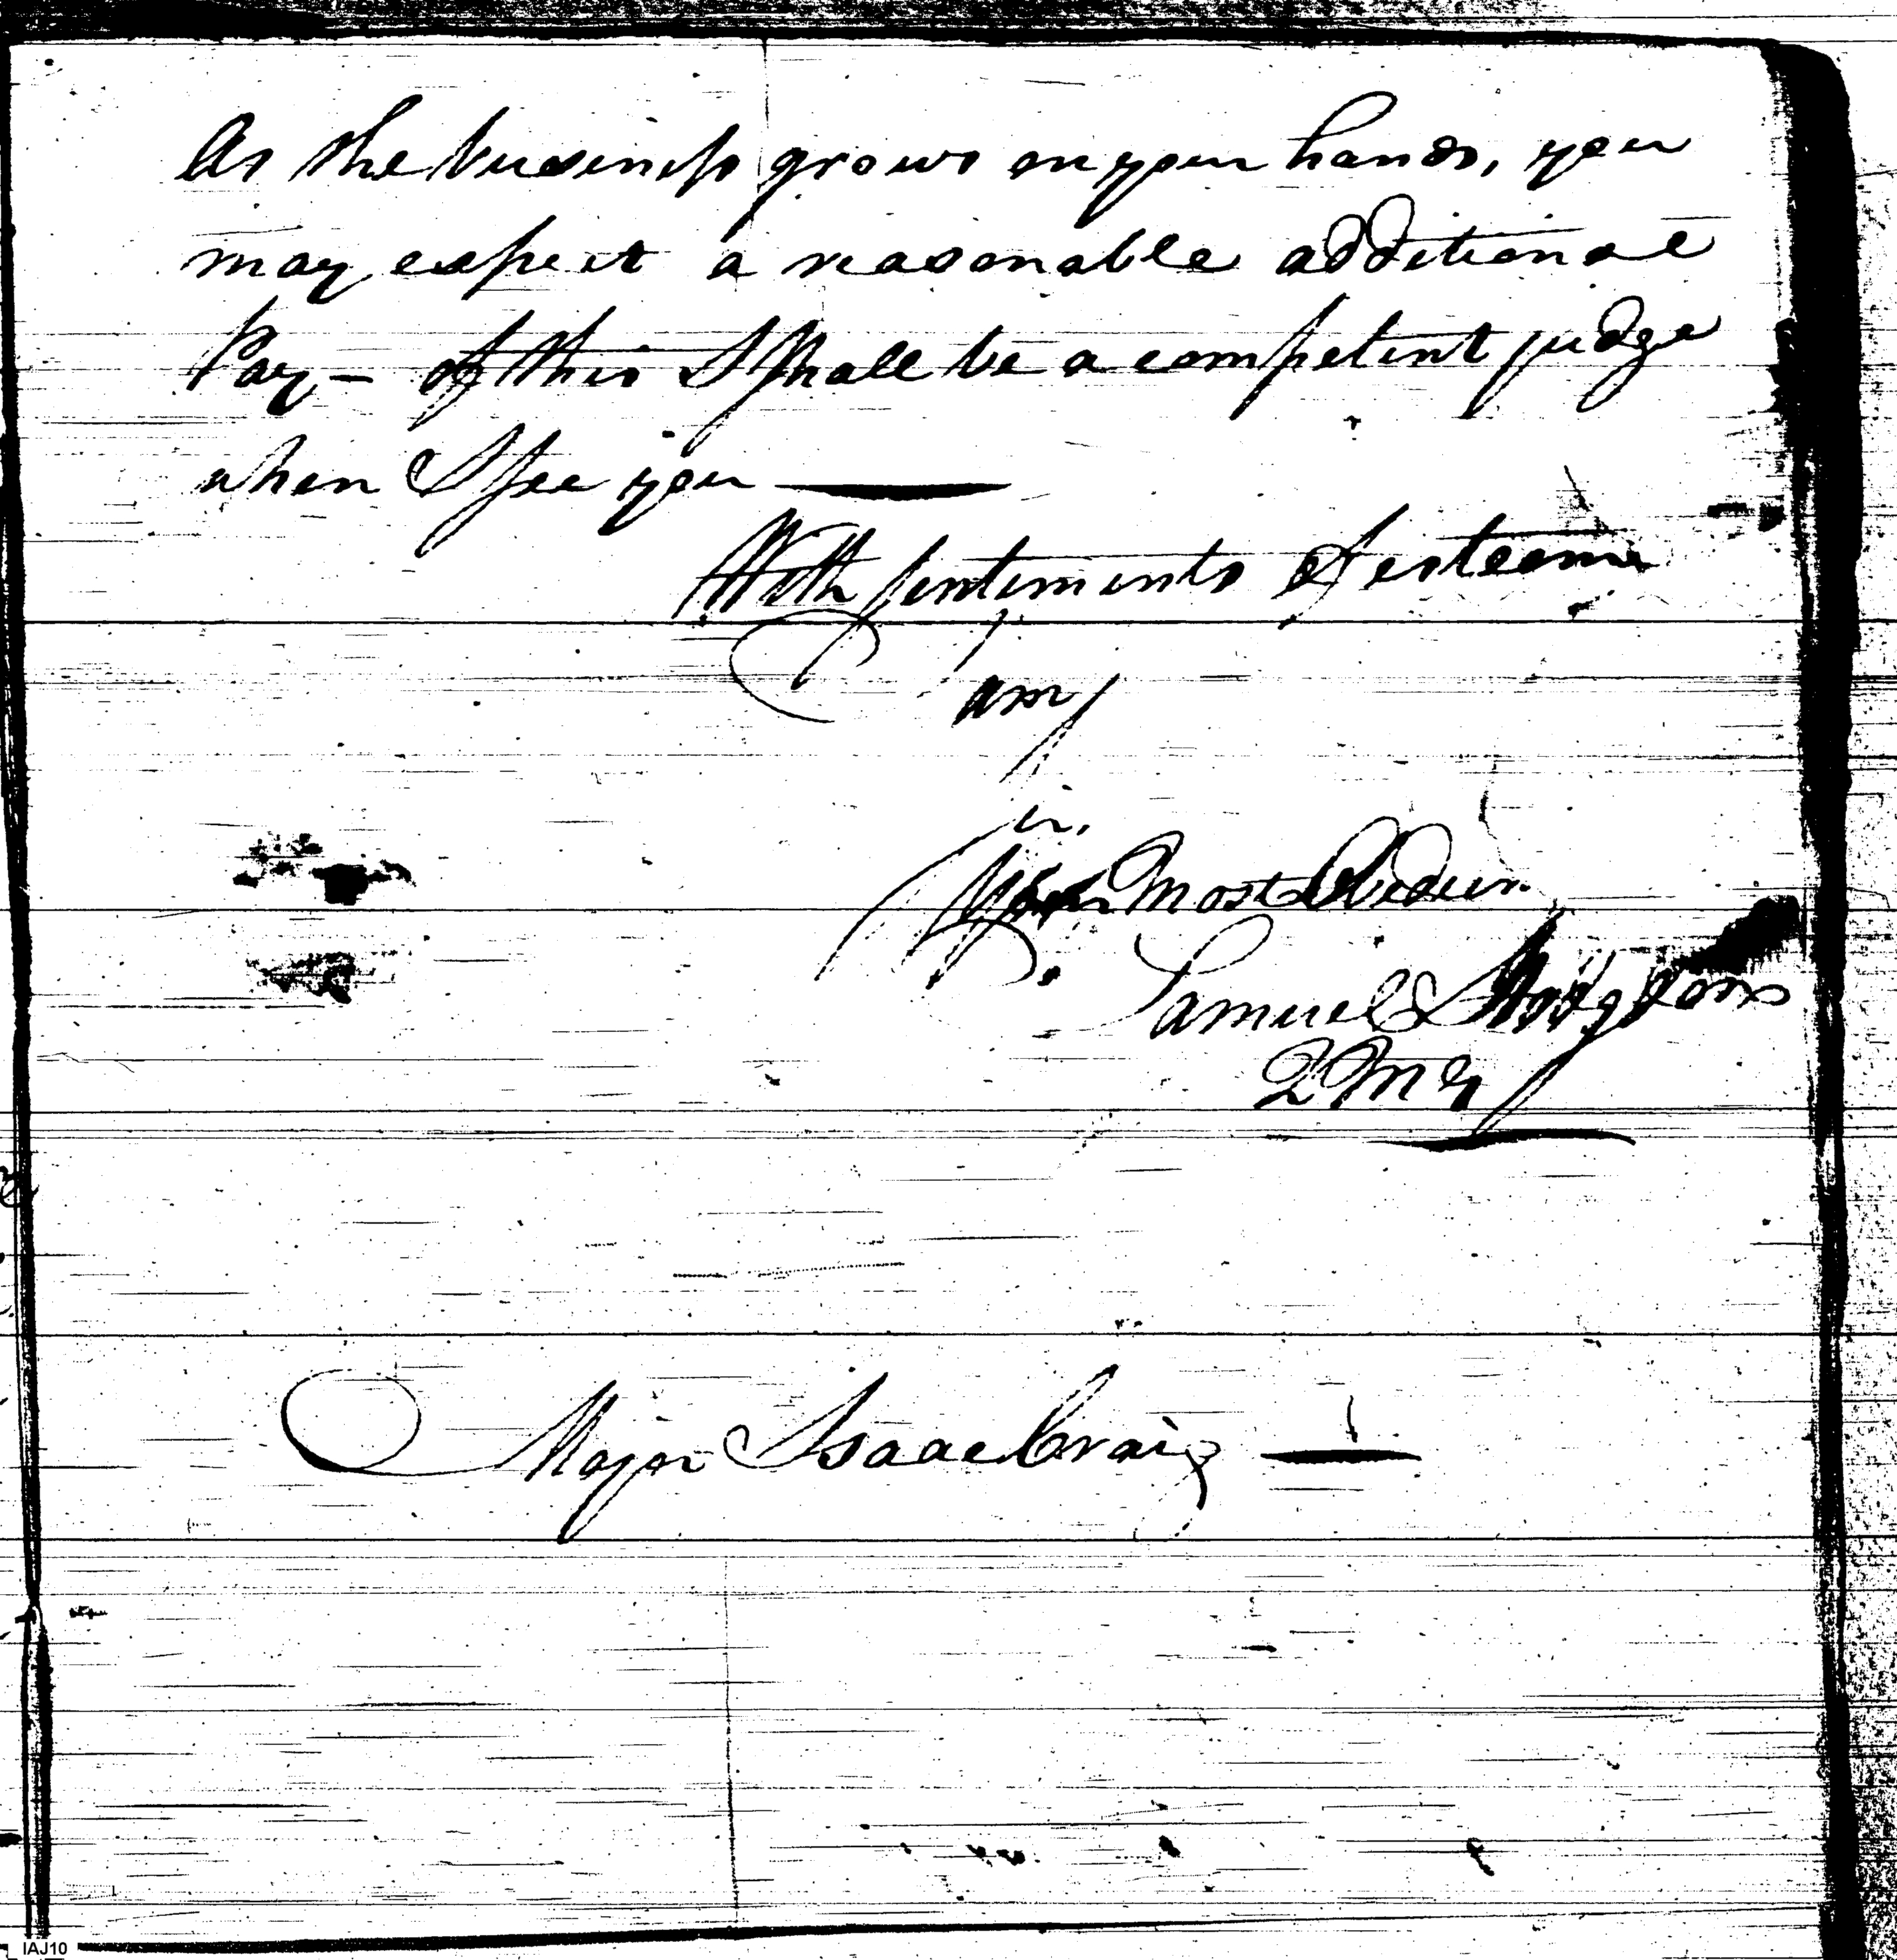 As the business grows on your hands, you
may expect a reasonable additional
Pay - of this I shall be a competent judge
when I see you
With sentiments of esteem
I
am
Sir,
Your Most Obedien
Samuel Hodgdon
QMG
Major Isaac Craig
IAJ10